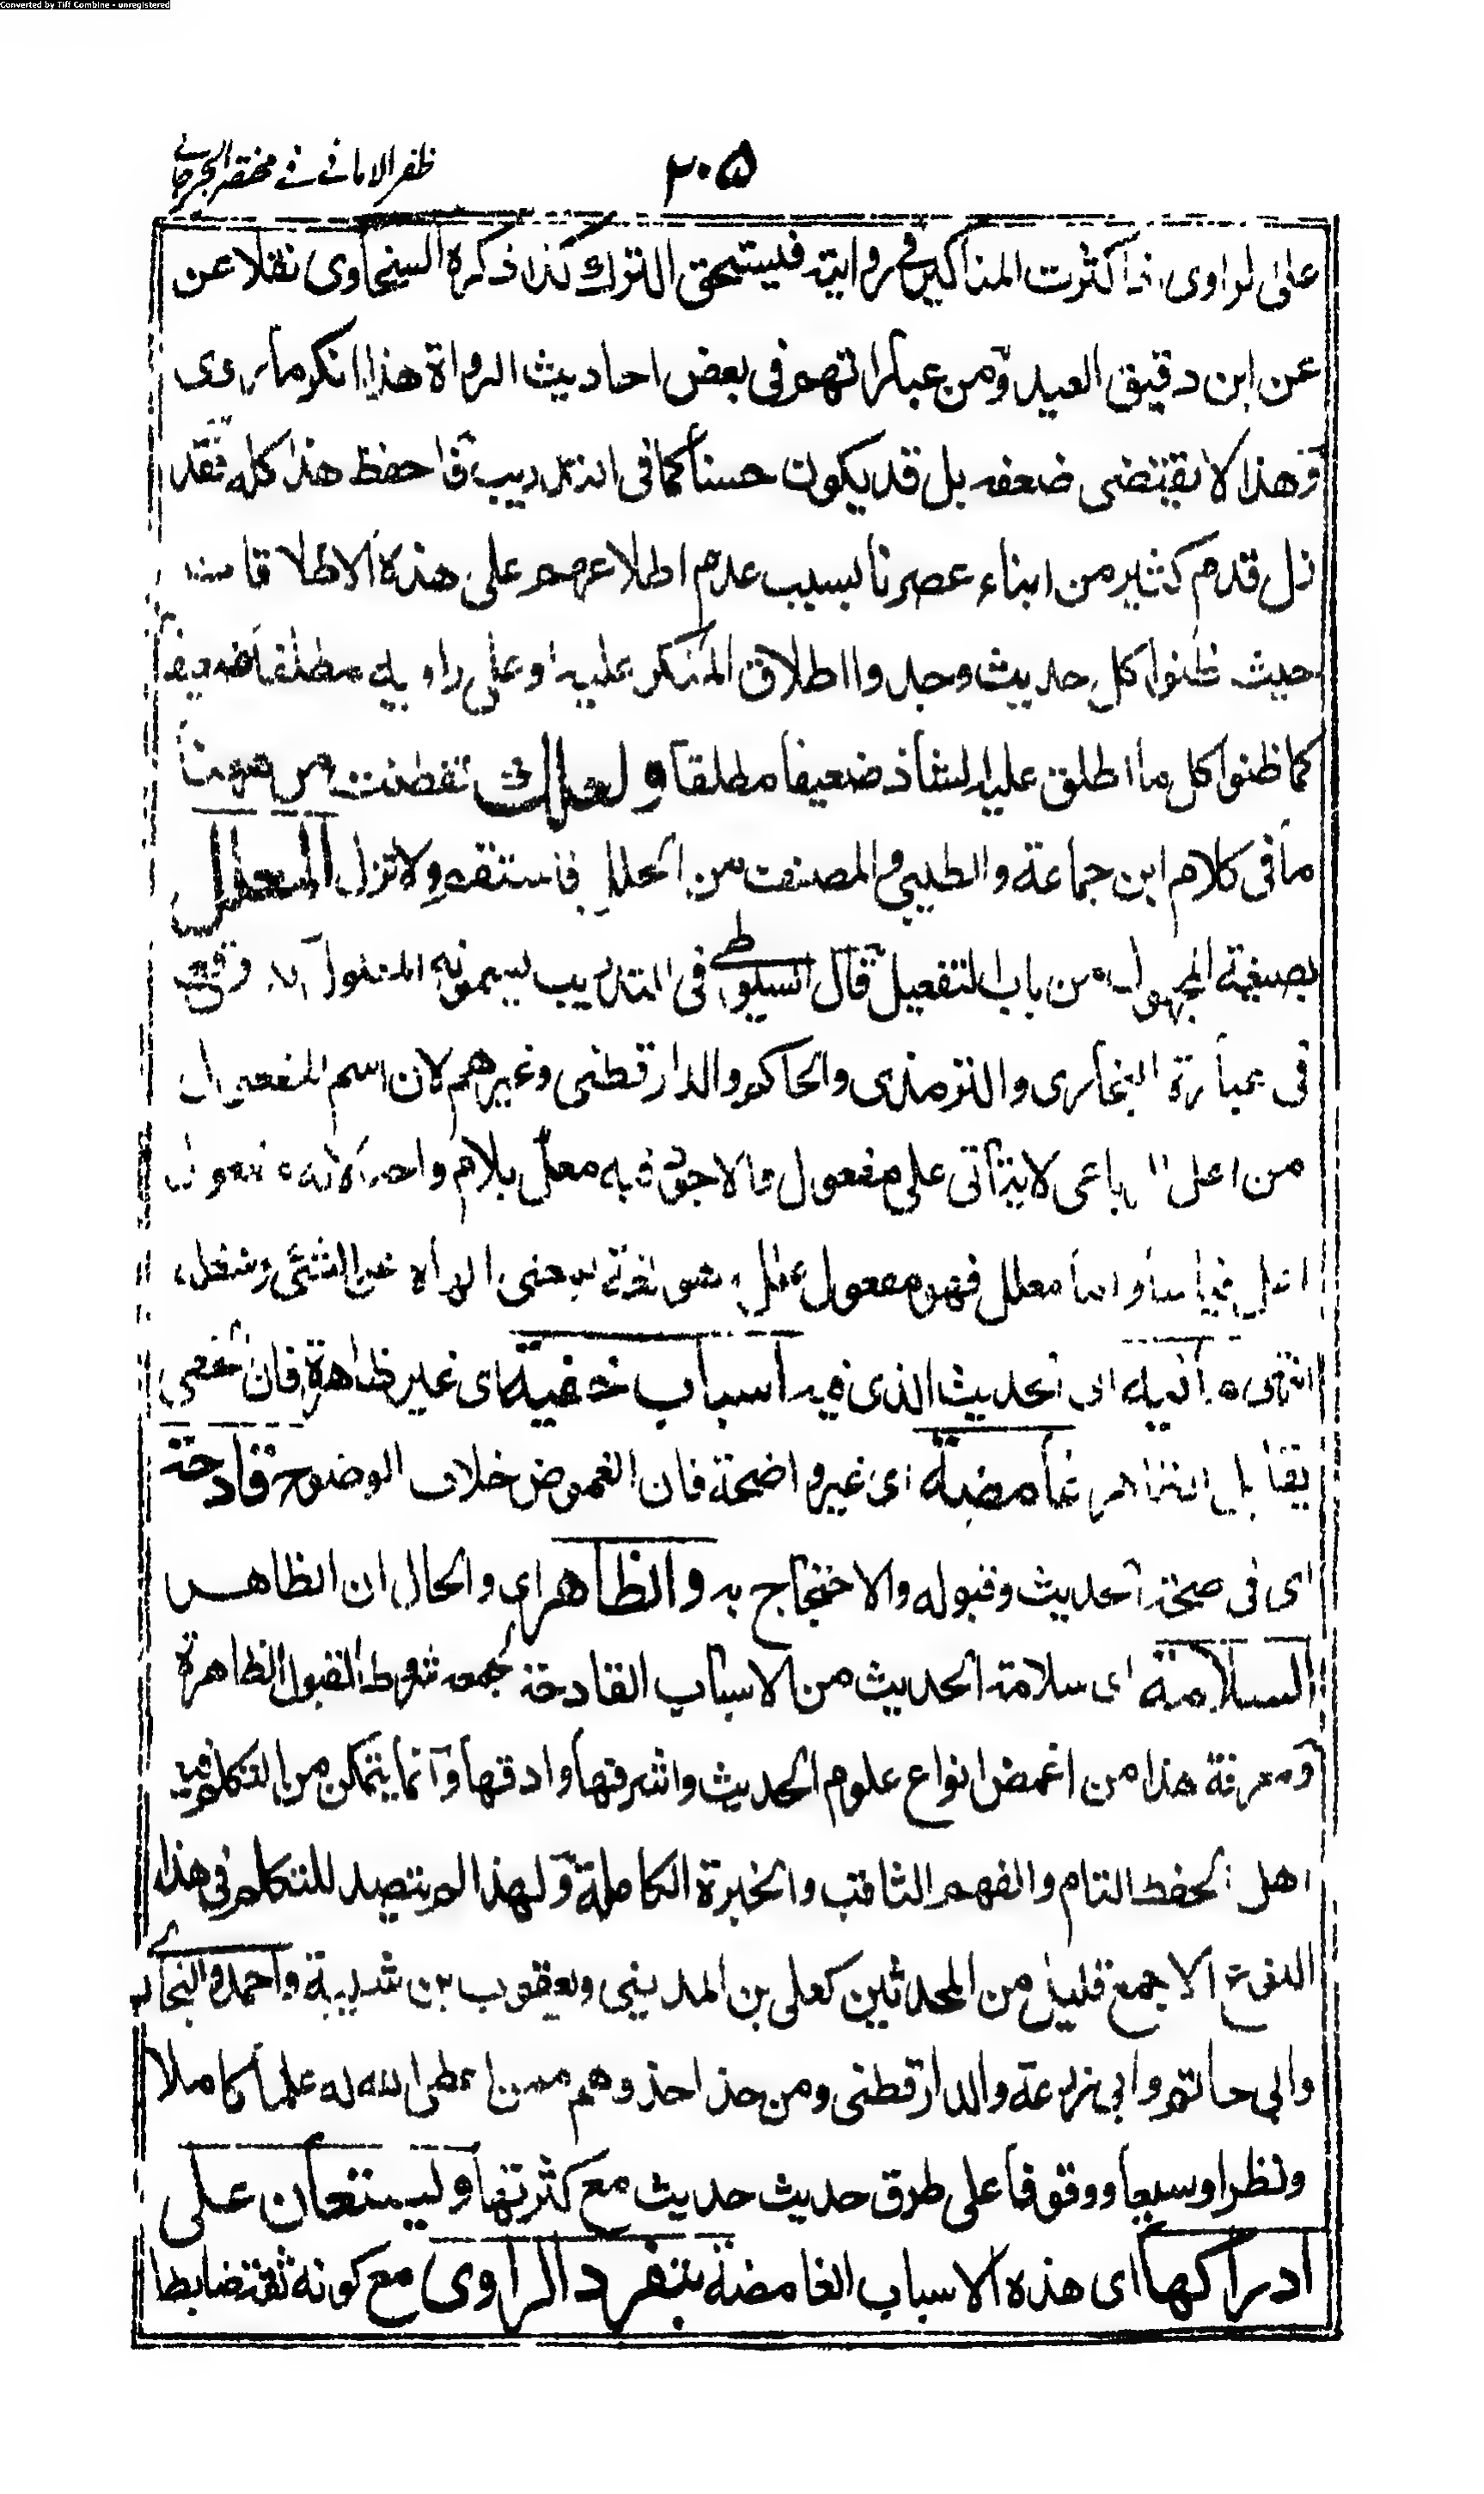 Converted by Tiff Combine - unregistered
ظفر الامانى فى مختصر الجرجانى
٢٠٥
على الراوى اذا كثرت المناكير فى روايته فيستحق الترك كذا ذكره السخاوى نقلا عن
عن ابن دقيق العيد ومن عباراتهم فى بعض احاديث الرواة هذا انكر ما روى
وهذا لا يقتضى ضعفه بل قد يكون حسنا كما فى التدريب فاحفظ هذا كله فقد
زل قدم كثير من ابناء عصرنا بسبب عدم اطلاعهم على هذه الاطلاقات
حيث ظنوا كل حديث وجدوا اطلاق المنكر عليه او على راويه مطلقا ضعيفا
كما ظنوا كل ما اطلق عليه الشاذ ضعيفا مطلقا ولعلك تفطنت من ههنا
ما فى كلام ابن جماعة والطيبى والمصنف من الخلل فاستقم ولا تزل المعلل
بصيغة المجهول من باب التفعيل قال السيوطى فى التدريب يسمونه المعلول كذا وقع
فى عبارة البخارى والترمذى والحاكم والدارقطنى وغيرهم لان اسم المفعول
من اعل الرباعى لا يتأتى على مفعول والاجود فيه معل بلام واحدة لانه مفعول
اعل قياسا واما معلل فهو مفعول علل وهو لغة بمعنى الهاه عن الشئ وشغله
انتهى ما فيه اى الحديث الذى فيه اسباب خفية اى غير ظاهرة فان الخفى
يقابل الظاهر غامضة اى غير واضحة فان الغموض خلاف الوضوح قادحة
اى فى صحة الحديث وقبوله والاحتجاج به والظاهر اى والحال ان الظاهر
السلامة اى سلامة الحديث من الاسباب القادحة لجمعه شروط القبول الظاهرة
ومعرفة هذا من اغمض انواع علوم الحديث واشرفها وادقها وانما يتمكن من التكلم فيه
اهل الحفظ التام والفهم الثاقب والخبرة الكاملة ولهذا لم يتصد للتكلم فى هذا
النوع الا جمع قليل من المحدثين كعلى بن المدينى ويعقوب بن شيبة واحمد والبخارى
وابى حاتم وابى زرعة والدارقطنى ومن حذا حذوهم ممن اعطى الله له علما كاملا
ونظرا وسيعا ووقوفا على طرق حديث حديث مع كثرتها وليستعان على
ادراكها اى هذه الاسباب الغامضة بتفرد الراوى مع كونه ثقة ضابطا